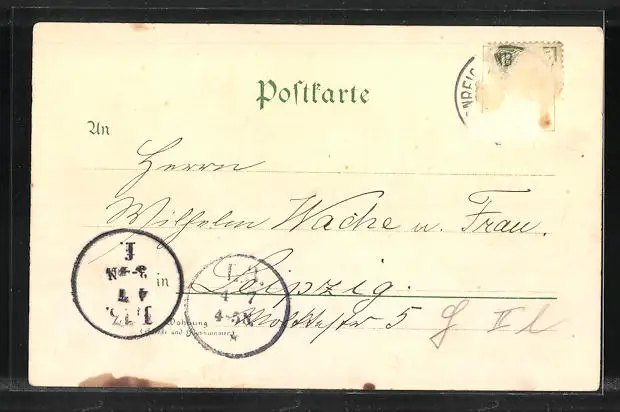 Postkarte
An
Herrn
Wilhelm Wache u. Frau.
in Leipzig.
Wohnung
(Straße und Hausnummer)
Moltkestr 5
L. 13.
4 7
3-4N
f.
4 7